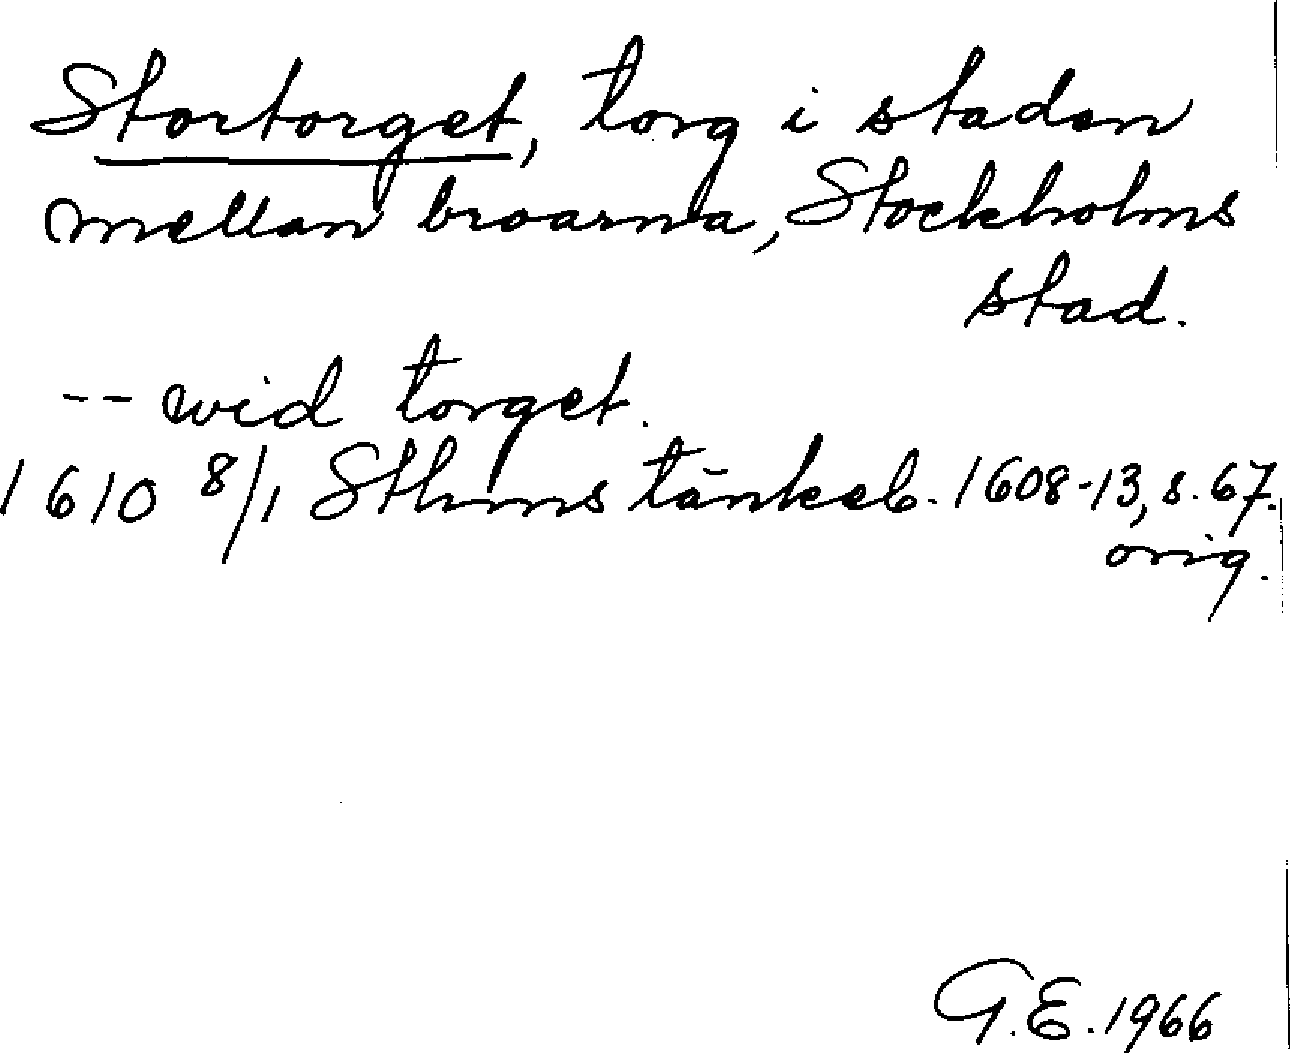 Stortorget, torg i staden
mellan broarna, Stockholms
stad.
-- wid torget.
1610 8/1 Sthms tänkeb. 1608-13, s. 67.
orig.
G.E. 1966